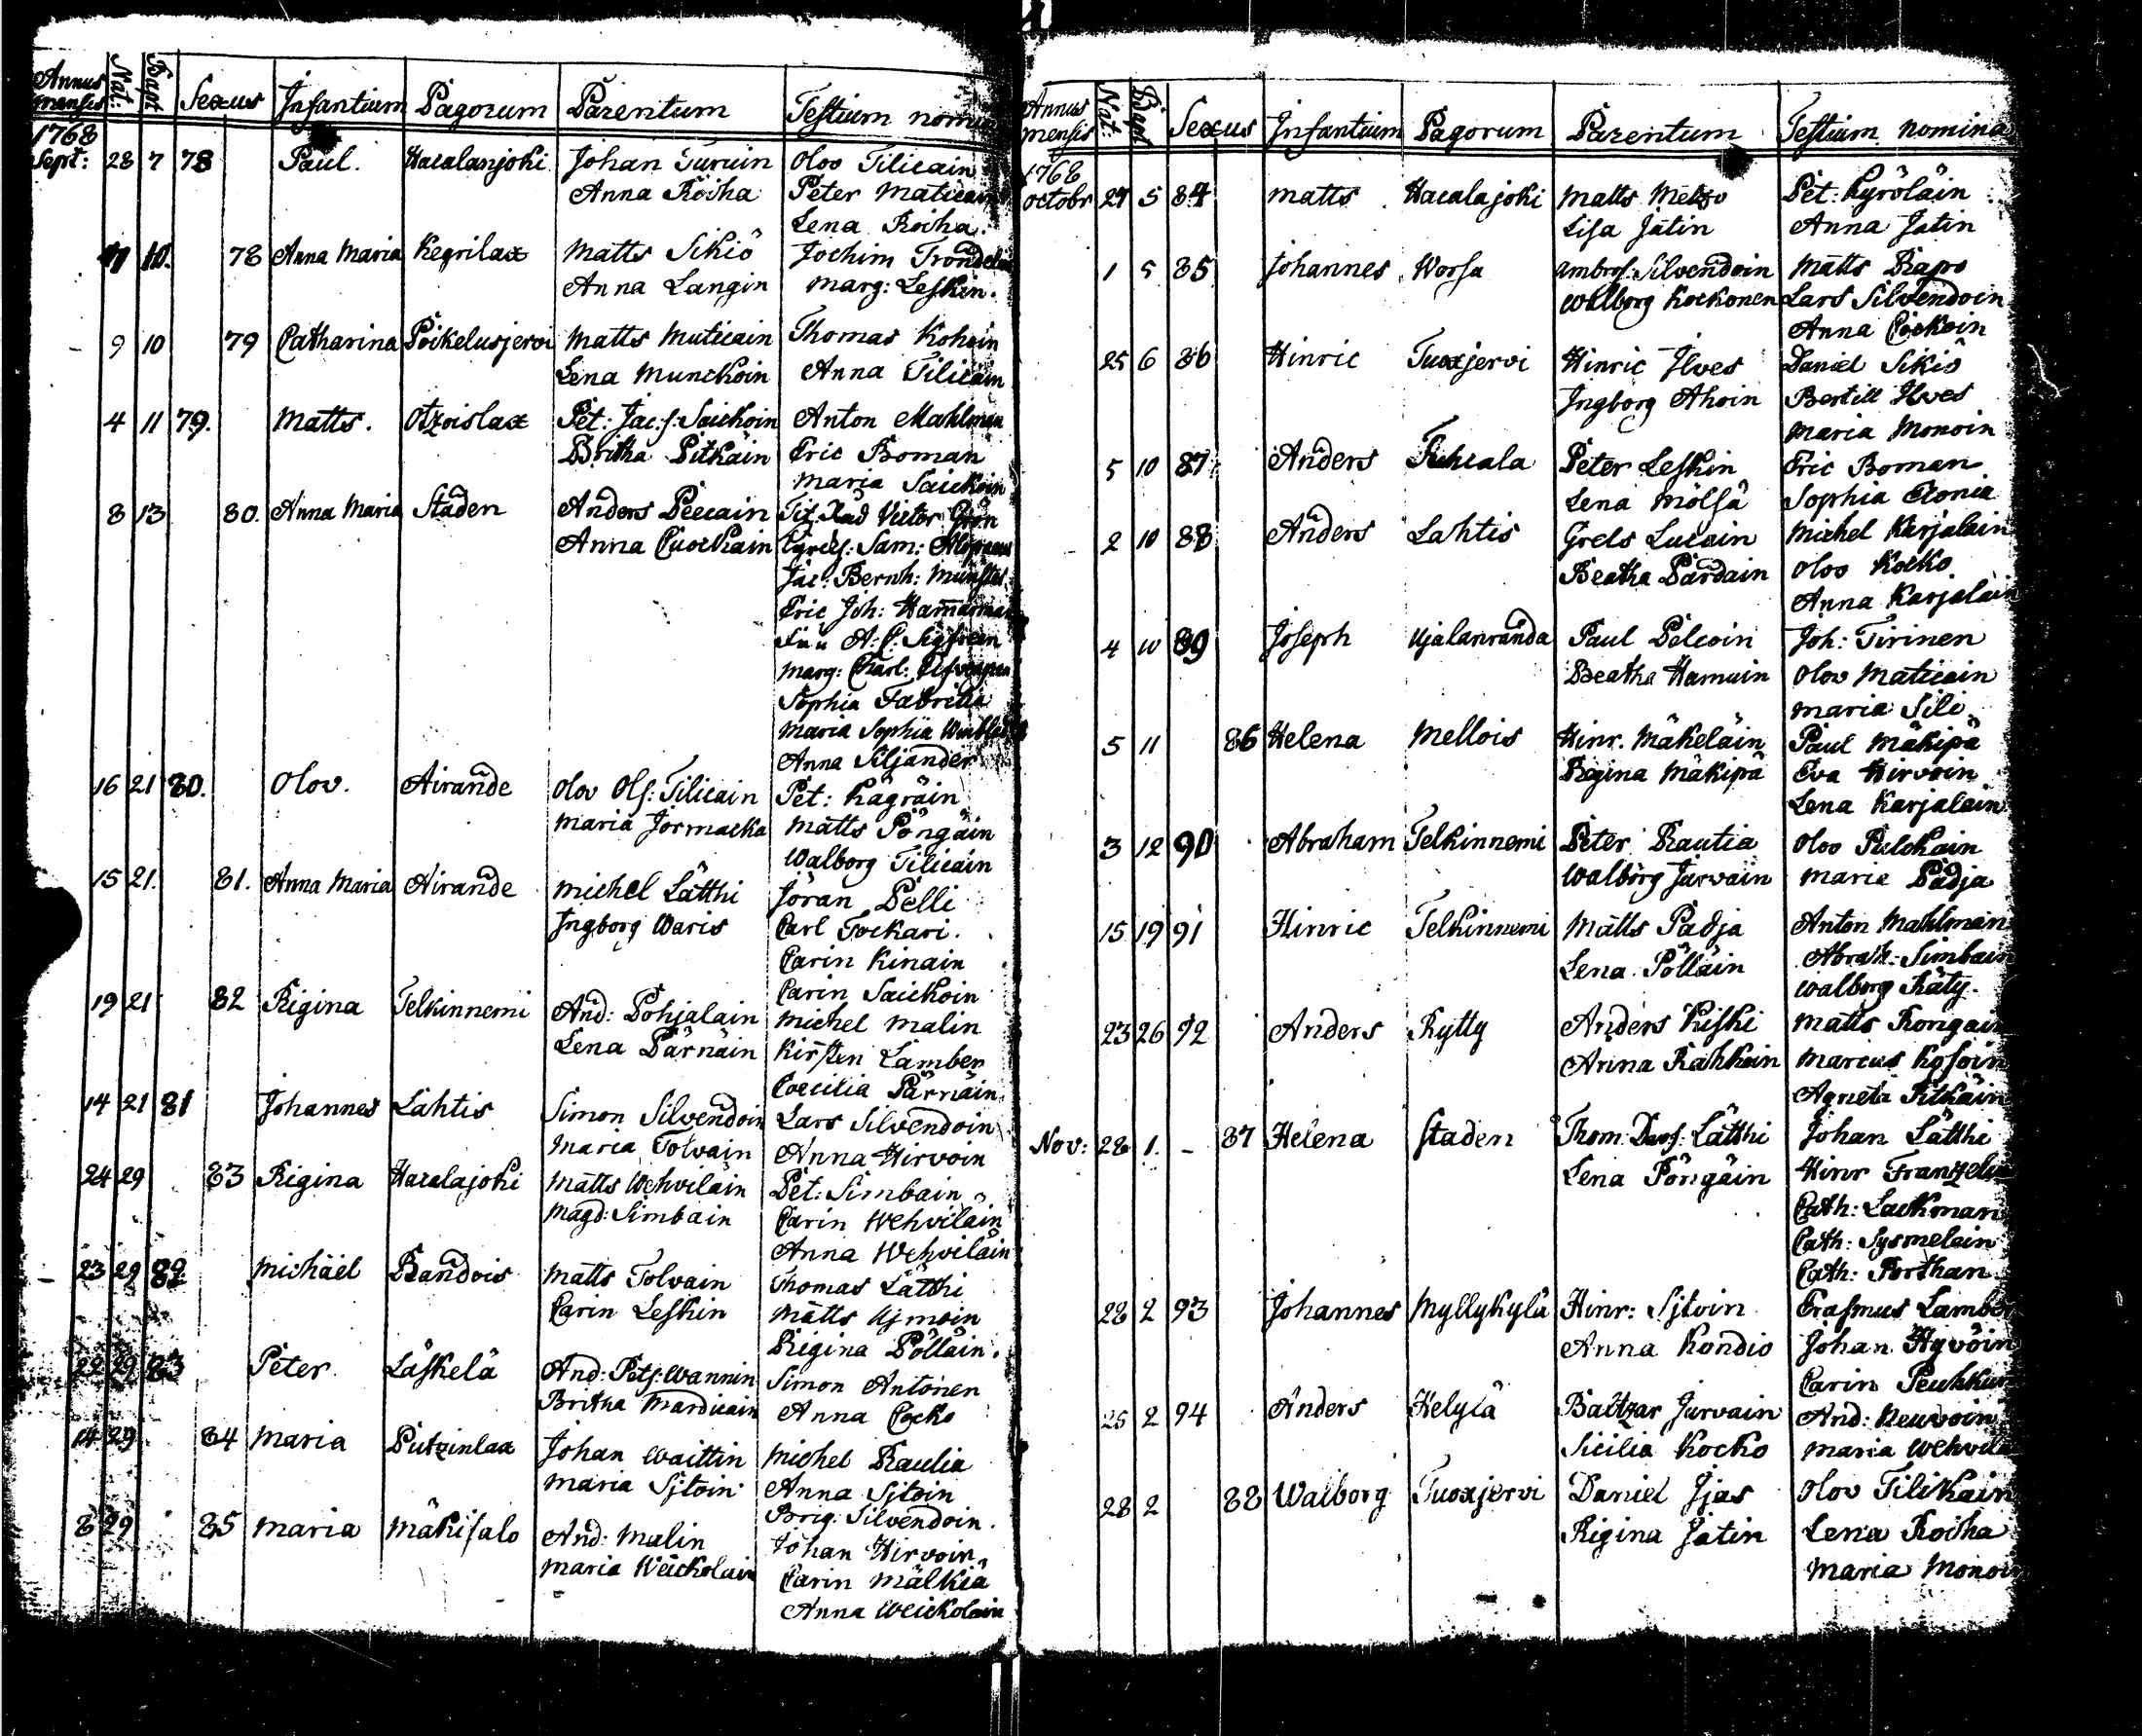 Annus mensis Nat: Bapt Sexus Infantium Pagorum Parentum Testium nomin
1768
Sept: 28 7 78 Paul. Hacalanjoki Johan Turuin Olov Tilicain
Anna Roiha Peter Maticain
Lena Roiha.
10. 78 Anna Maria Kegrilax Matts Sikiö Jochim
Anna Langin Marg: Leskin.
9 10 79 Catharina Poikelusjervi Matts Muticain Thomas Kohoin
Lena Munckoin Anna Tilicain
4 11 79. Matts. Otzoislax Pet: Jac:s: Saickoin Anton Mahlman
Britha Pitkäin Eric Boman
Maria Saickoin
8 13 80. Anna Maria Staden Anders Peecain Tit. Råd Victor Grön
Anna Cuockain Sam:
Jac: Bernh: Münster
Eric Joh: Hammarman
Marg: Charl:
Sophia Fabritia
Maria Sophia
Anna Siljander
16 21 80. Olov. Airande Olov Ols: Tilicain Pet: Kägräin
Maria Jormacka Matts Pöngäin
Walborg Tilicain
15 21. 81. Anna Maria Airande Michel Lätthi Jöran Pelli
Ingborg Waris Carl Tockari.
Carin Kinain
Carin Saickoin
19 21 82 Rigina Telkinnemi And: Pohjalain Michel Malin
Lena Pärnäin Kirsten Lamber
Coecilia Pärnäin
14 21 81 Johannes Lahtis Simon Silvendoin Lars Silvendoin
Maria Tolvain Anna Hirvoin
24 29 83 Rigina Hacalajoki Matts Wehviläin Pet: Simbain
Magd: Simbain Carin Wehviläin
Anna Wehviläin
23 29 82 Michäel Randois Matts Tolvain Thomas Lätthi
Carin Leskin Matts
Rigina Pölläin.
29 83 Peter Läskelä And: Pets: Wannin Simon Antonen
Britha Mardicain Anna Cocko
14 29 84 Maria Putzinlax Johan Waittin Michel Rautia
Maria Sjtoin Anna Sjtoin
Brig: Silvendoin.
8 29 85 Maria Mäkisalo And: Malin Johan Hirvoin
Maria Weickolain Carin Mälkiä
Anna Weickolain
Annus mensis Nat: Bapt Sexus Infantium Pagorum Parentum Testium nomina
1768
Octobr 29 5 84 Matts Hacalajoki Matts Metzo Pet: Kyröläin
Lisa Jatin Anna Jatin
1 5 85 Johannes Worsa Ambros: Silvendoin Matts Rapo
Walborg Kockonen Lars Silvendoin
Anna
25 6 86 Hinric Tuoxjervi Hinric Ilves Daniel Sikiö
Ingborg Ahoin Bertill Ilves
Maria Monoin
5 10 87 Anders Peter Leskin Eric Boman
Lena Mölsä Sophia
2 10 88 Anders Lahtis Grels Lucain Michel Karjalain
Beatha Pärdäin Olov Kocko
Anna Karjalain
4 10 89 Joseph Ujalanranda Paul Pelcoin Joh: Tirinen
Beatha Hamuin Olov Maticain
Maria Sili
5 11 86 Helena Mellois Hinr. Mäkeläin Paul Mäkipä
Regina Mäkipä Eva Hirvoin
Lena Karjalain
3 12 90 Abraham Telkinnemi Peter Rautia Olov Pulckain
Walborg Jurvain Maria Padja
15 19 91 Hinric Telkinnemi Matts Padja Anton Mahlman
Lena Pölläin Abrah: Simbain
Walborg Räty.
23 26 92 Anders Rytty Anders Kiski Matts Rongain
Anna Rahkoin Marcus Kosoin
Agneta Pitkäin
Nov: 28 1. - 87 Helena Staden Thom: Davs: Lätthi Johan Lätthi
Lena Pöngäin Hinr Frantzeli
Cath: Lackman
Cath: Sysmelain
Cath: Porthan
28 2 93 Johannes Myllykylä Hinr: Sjtoin Erasmus Lamber
Anna Kondio Johan Hyvöin
Carin Peuhkur
25 2 94 Anders Helylä Baltzar Jurvain And: Neuvoin
Sicilia Kocko Maria Wehvilä
28 2 88 Walborg Tuoxjervi Daniel Ijas Olov Tilikain
Rigina Jatin Lena Roiha
Maria Monoin